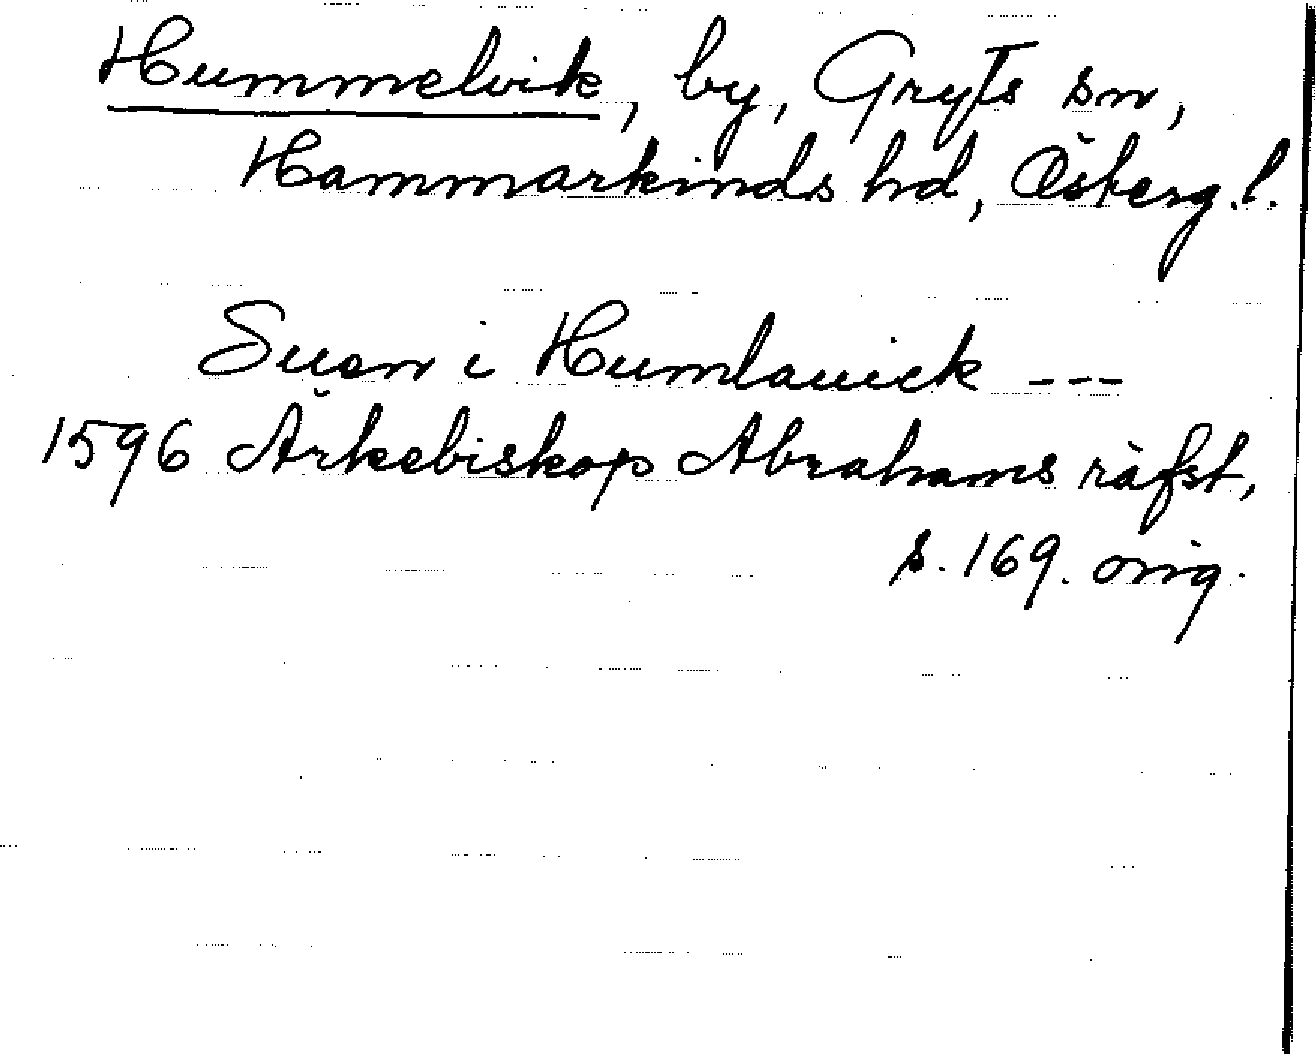 Hummelvik, by, Gryts sn,
Hammarkinds hd, Österg.l.
Suen i Humlauick ---
1596 Ärkebiskop Abrahams räfst,
s. 169. orig.